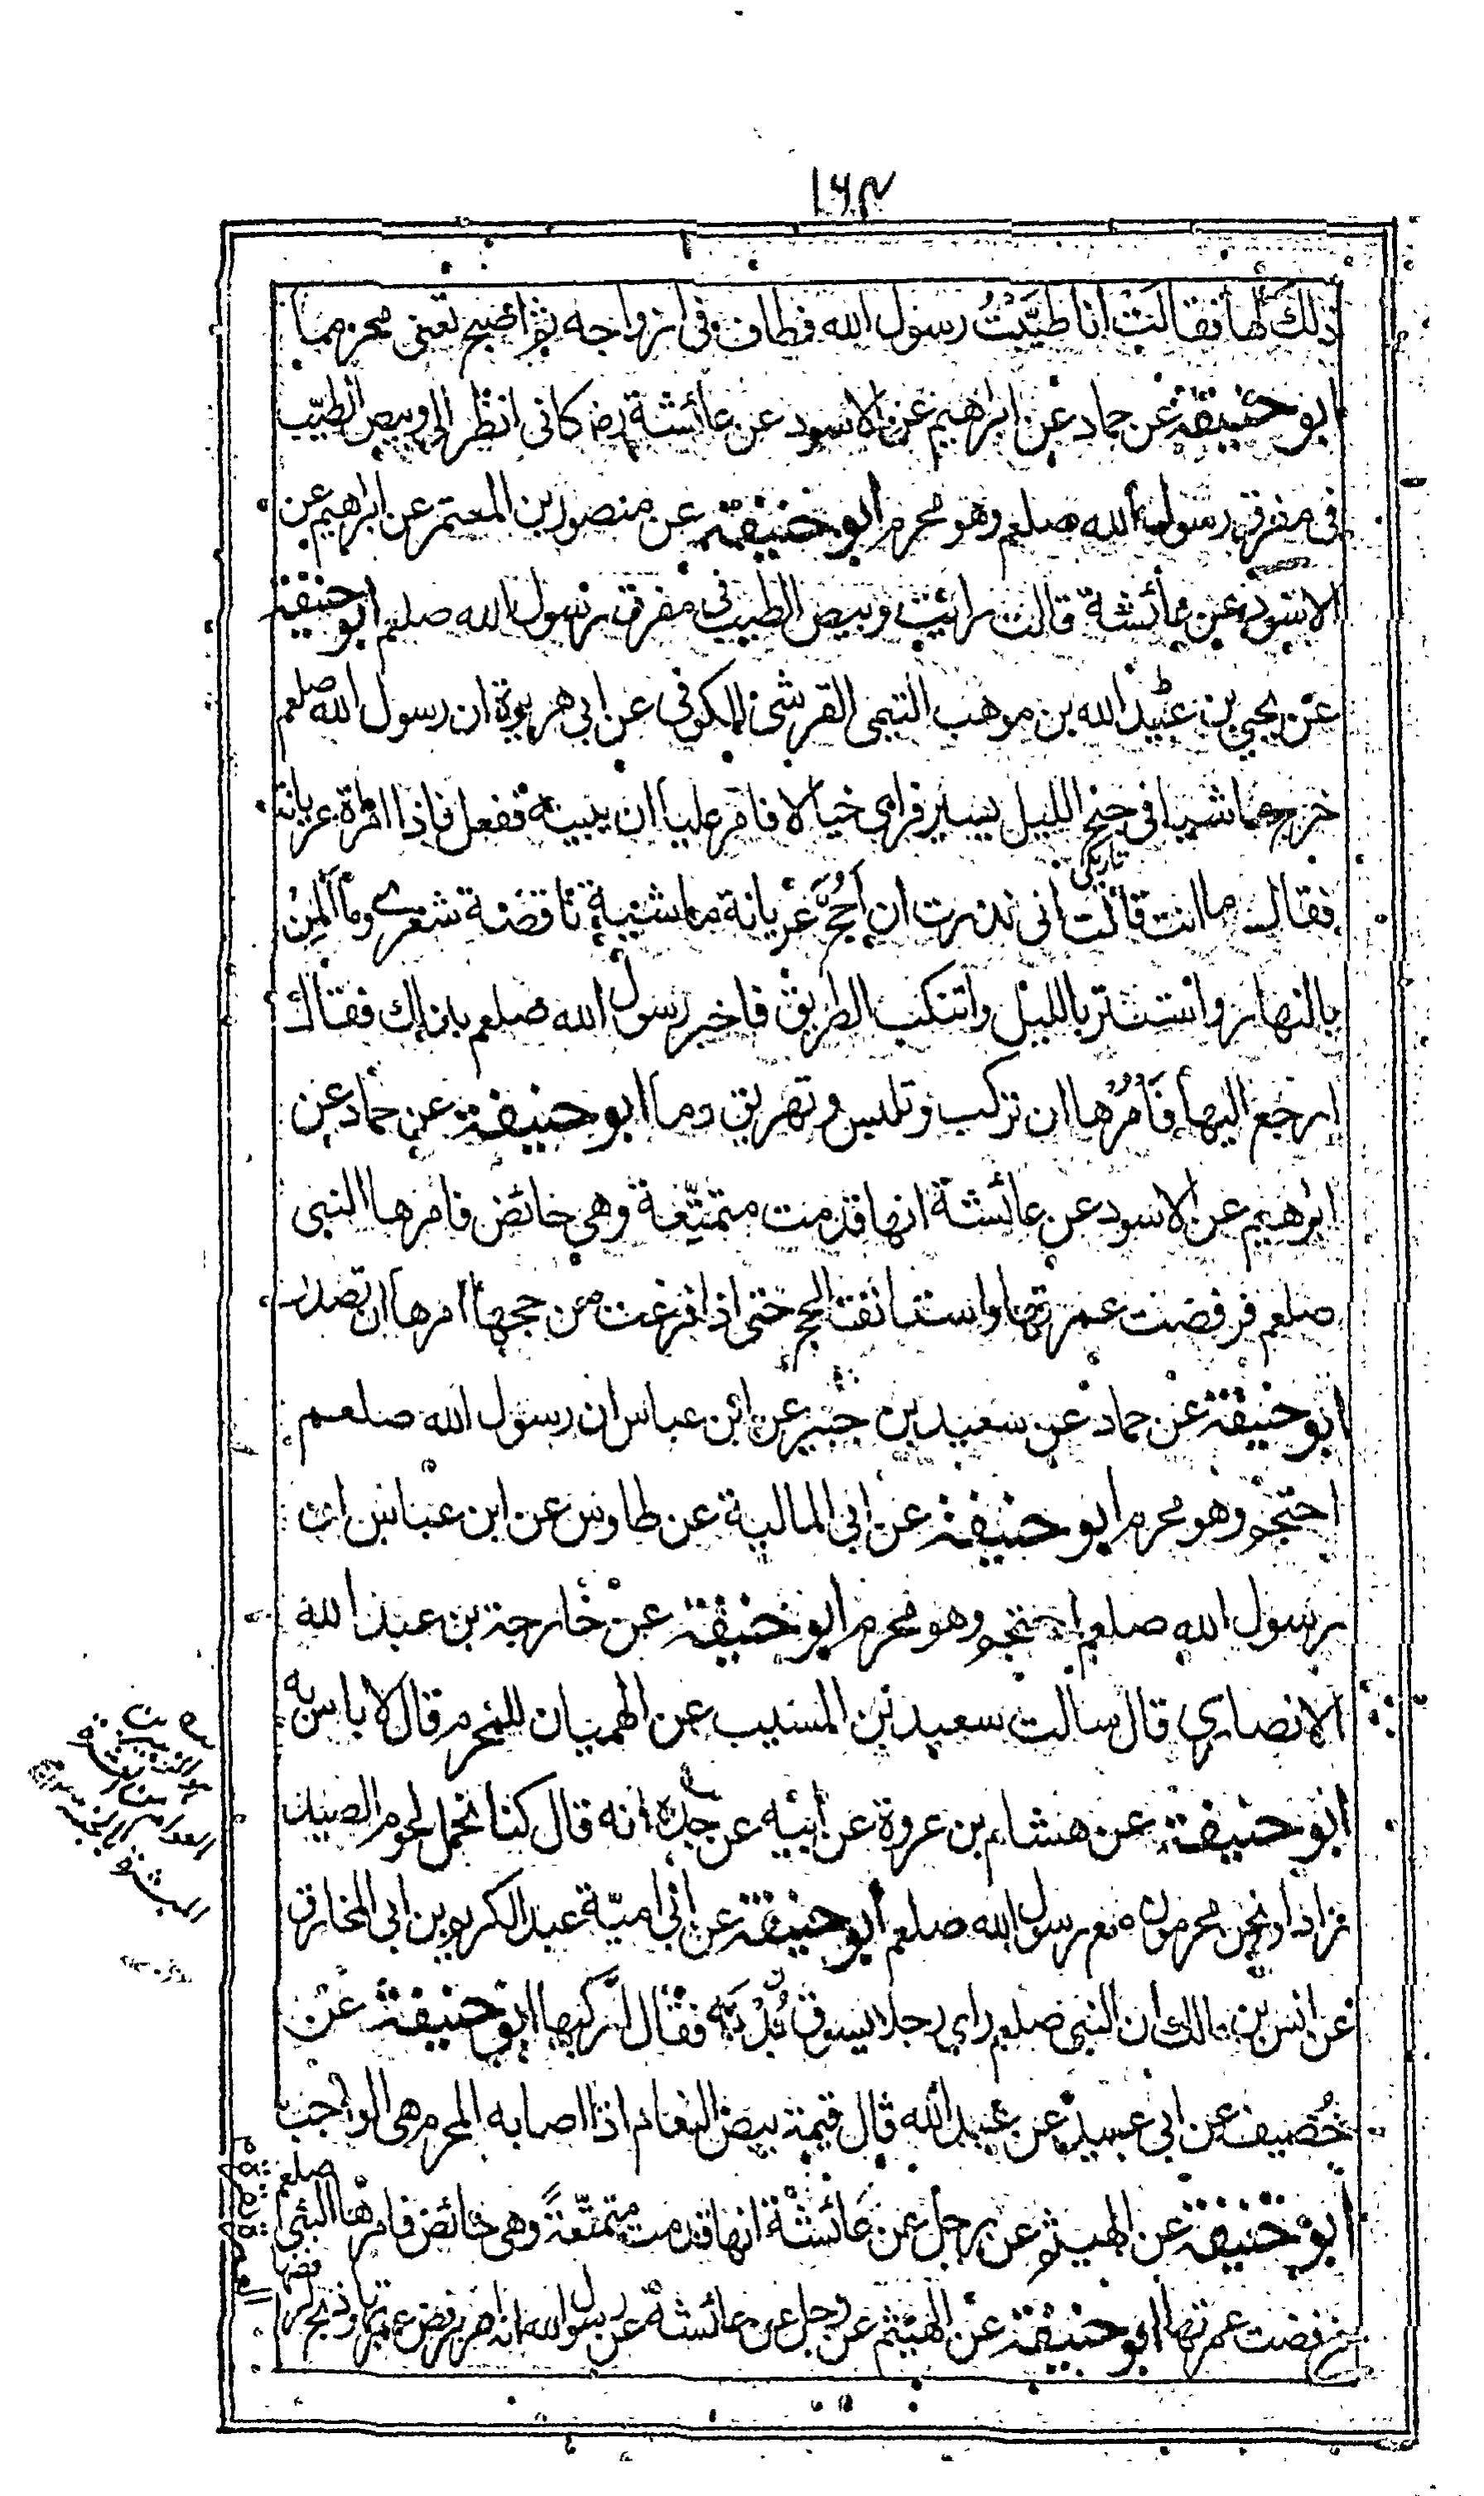 ۱۶۴
ذلك لها فقالت انا طيَّبْتُ رسول الله فطاف فى ازواجه ثم اصبح تعنى محرما
ابو حنيفة عن حماد عن ابراهيم عن الاسود عن عائشة رض كانى انظر الى وبيص الطيب
فى مفرق رسول الله صلعم وهو محرم ابو حنيفة عن منصور بن المعتمر عن ابراهيم عن
الاسود عن عائشة قالت رائيت وبيص الطيب فى مفرق رسول الله صلعم ابو حنيفة
عن يحيى بن عبيد الله بن موهب التيمى القرشى الكوفى عن ابى هريرة ان رسول الله صلعم
خرج ماشيا فى جنح الليل يسير فراى خيالا فامر عليا ان يبينه ففعل فاذا امرأة عريانة
تاريكى
فقال ما انت قالت انى نذرت ان اَحُجَّ عريانة ماشية ناقضة شعرى وما اَلْمِنْ
بالنهار واستتر بالليل واتنكب الطريق فاخبر رسول الله صلعم بذلك فقال
ارجع اليها فَاْمُرْها ان تركب وتلبس وتهريق دما ابو حنيفة عن حماد عن
ابراهيم عن الاسود عن عائشة انها قدمت متمتّعة وهى حائض فامرها النبى
صلعم فرفضت عمرتها واستانفت الحج حتى اذا فرغت من حجها امرها ان تصدر
ابو حنيفة عن حماد عن سعيد بن جبير عن ابن عباس ان رسول الله صلعم
احتجم وهو محرم ابو حنيفة عن ابى المالية عن طاوس عن ابن عباس ان
رسول الله صلعم احتجم وهو محرم ابو حنيفة عن خارجة بن عبد الله
الانصارى قال سالت سعيد بن المسيب عن الهميان للمحرم قال لا باس به
ابو حنيفة عن هشام بن عروة عن أبيه عن جده انه قال كنا نحمل لحوم الصيد
زادا ونحن محرمون مع رسول الله صلعم ابو حنيفة عن ابى اميّة عبد الكريم بن ابى المخارق
عن انس بن مالك ان النبى صلعم راى رجلا يسوق بُدْنَه فقال اركبها ابو حنيفة عن
خُصيف عن ابى عبيد عن عبيد الله قال قيمة بيض النعام اذا اصابه المحرم هى الواجب
ابو حنيفة عن الهيثم عن رجل عن عائشة انها قدمت متمتّعةً وهى حائض فامرها النبى صلعم
فرفضت عمرتها ابو حنيفة عن الهيثم عن رجل عن عائشة عن رسول الله انه امر برفض عمرتها وذبح لرفضها